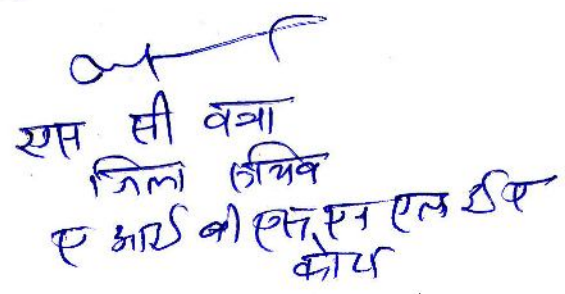 एस सी वत्रा
जिला सचिव
ए आई बी एस एन एल ई ए